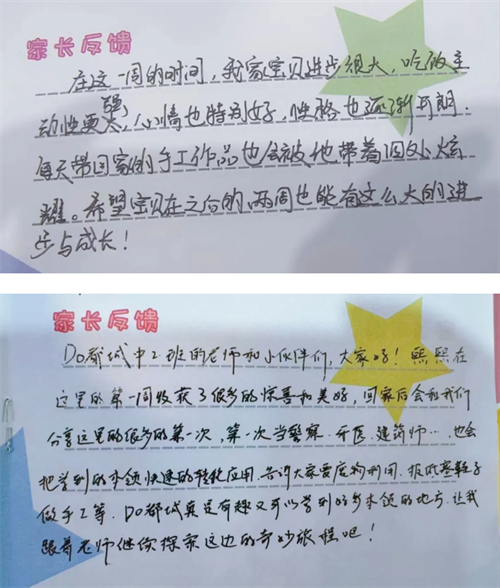 家长反馈
在这一周的时间，我家宝贝进步很大，吃饭主
动性更强，心情也特别好，性格也逐渐开朗．
每天带回家的手工作品也会被他带着四处炫
耀。希望宝贝在之后的两周也能有这么大的进
步与成长！
家长反馈
DO都城中2班的老师和小伙伴们，大家好！熙熙在
这里的第一周收获了很多的惊喜和美好，回家后会和我们
分享这里的很多的第一次，第一次当警察．牙医．建筑师…，也会
把学到的本领快速的转化应用．告诉大家要废物利用．报纸
做手工等．DO都城真是有趣又可以学到好多本领的地方．让我
跟着老师继续探索这边的奇妙旅程吧！